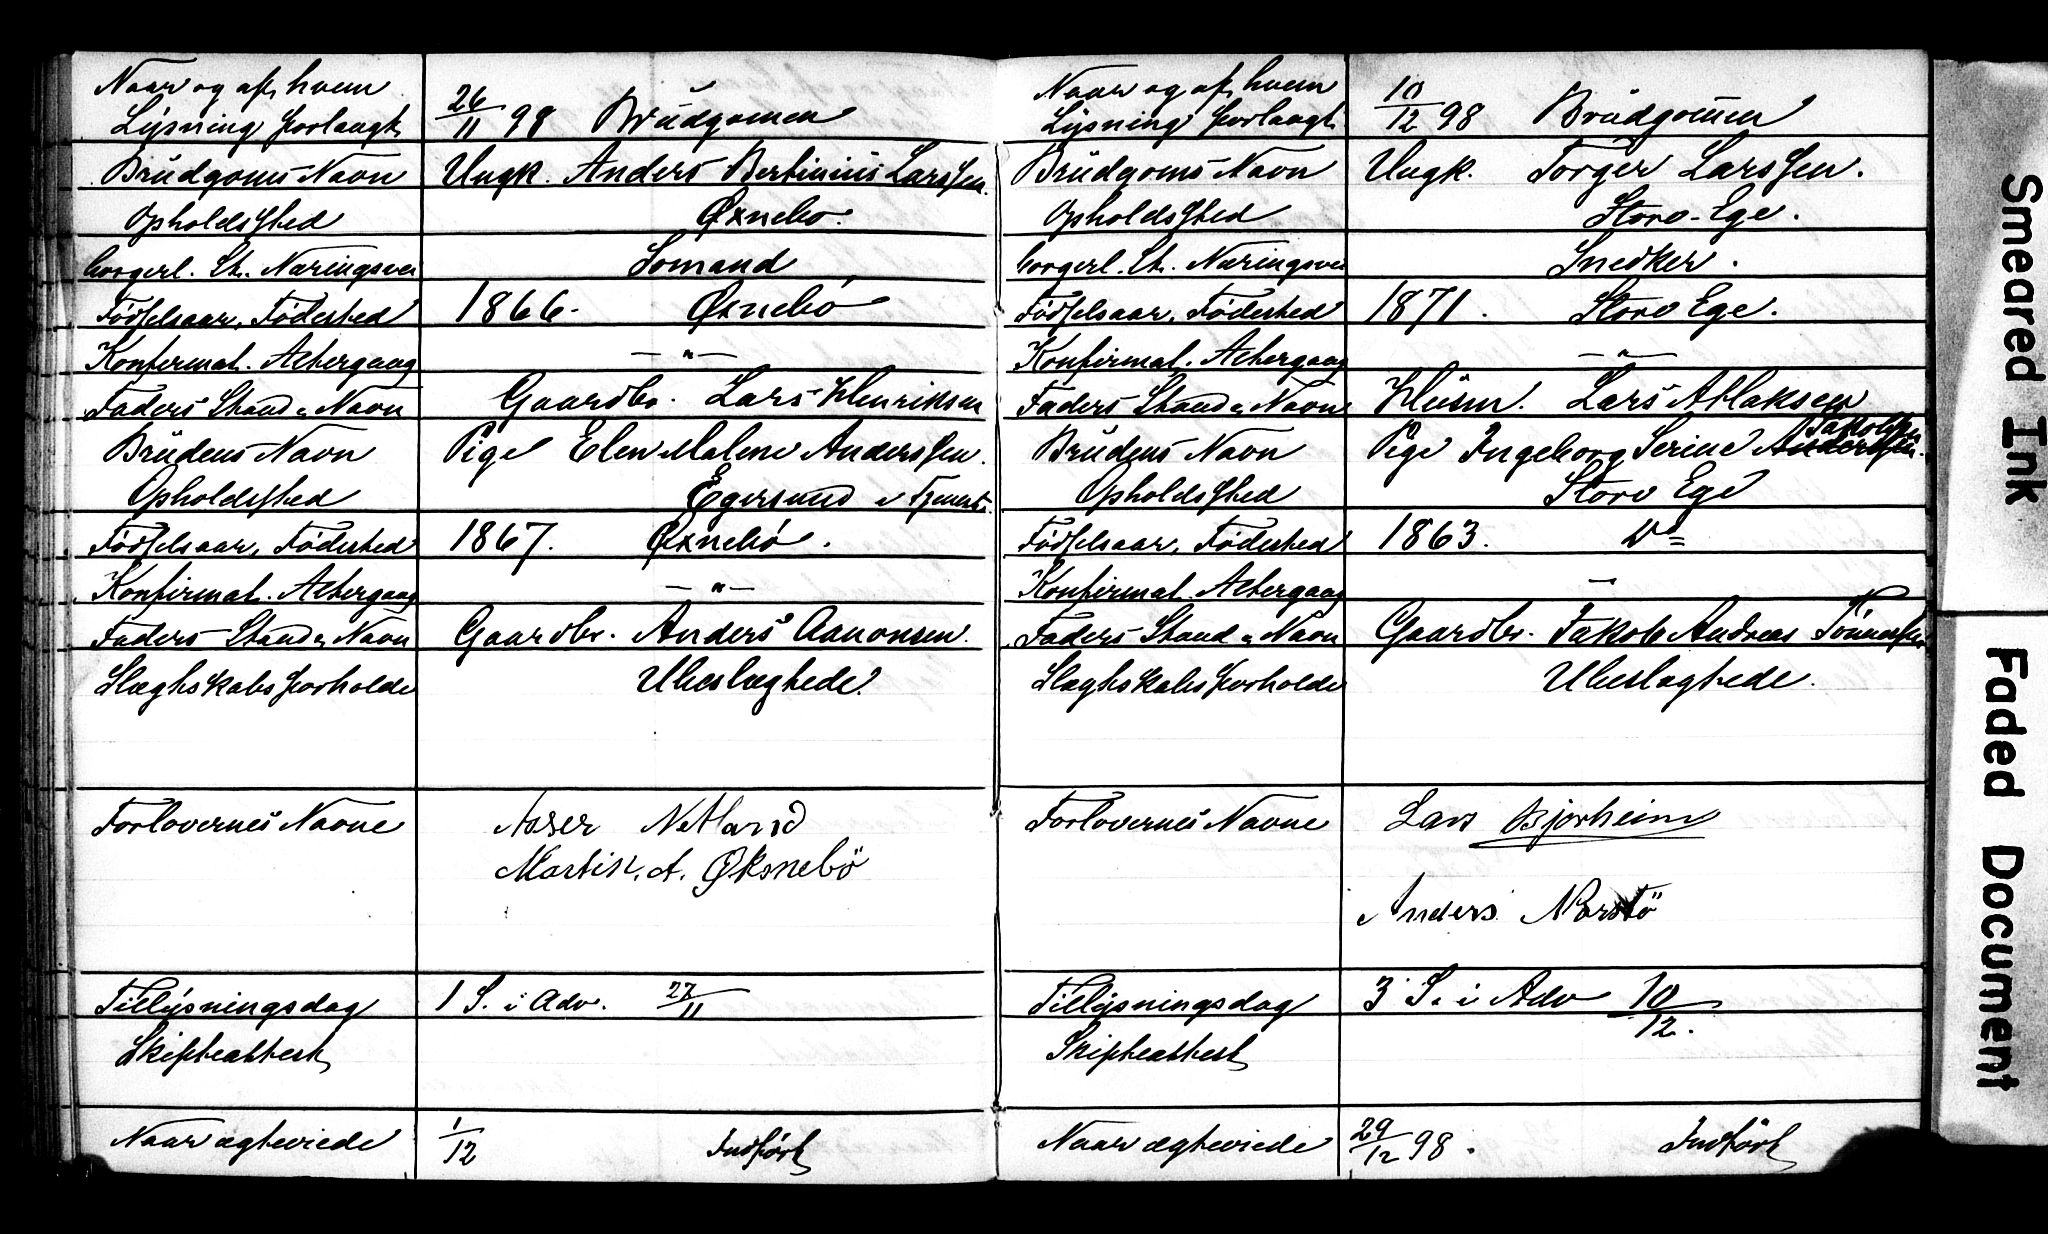 Naar og af hvem
Lysning forlangt 26/11 98 Brudgomen
Brudgoms Navn Ungk. Anders Bertinius Larssen.
Opholdssted Øxnebo.
borgerl. St. Næringsvei Sømand
Fødselsaar, Fødested 1866. Øxnebø
Konfirmat. Altergang — " —
Faders Stand & Navn Gaardbr. Lars Henriksen
Brudens Navn Pige Elen Malene Anderssen.
Opholdssted Egersund
Fødselsaar, Fødested 1867. Øxnebø.
Konfirmat. Altergang — " —
Faders Stand & Navn Gaardbr. Anders Aanonsen.
Slægtskabsforholde Ubeslægtede.
Forlovernes Navne Asser Netland
Martin. A. Øksnebö
Tillysningsdag 1 S. i Adv. 27/11
Skifteattest
Naar ægteviede 1/12 Indført
Naar og af hvem
Lysning forlangt 10/12 98 Brudgommen
Brudgoms Navn Ungk. Torger Larssen.
Opholdssted Store-Ege.
borgerl. St. Næringsvei Snedker.
Fødselsaar, Fødested 1871. Store Ege.
Konfirmat. Altergang — " —
Faders Stand & Navn Husm. Lars Atlaksen
Brudens Navn Pige Ingeborg Serine Anderssen. Jakobsen
Opholdssted Store Ege
Fødselsaar, Fødested 1863. Do
Konfirmat. Altergang —
Faders Stand & Navn Gaardbr. Jakob Andreas Tønnessen
Slægtskabsforholde Ubeslægtede.
Forlovernes Navne Lars Bjorheim
Anders Norstö
Tillysningsdag 3 S. i Adv 10/12.
Skifteattest
Naar ægteviede 29/12 98. Indført
Smeared Ink
Faded Document